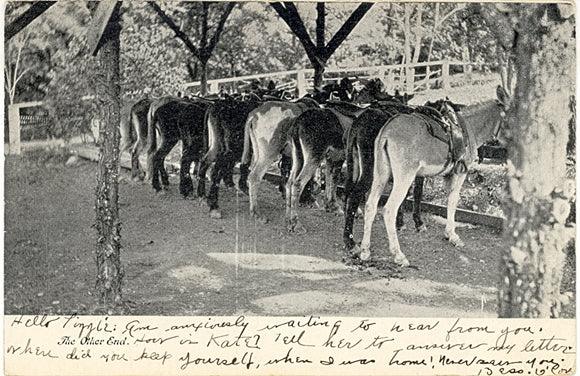 Hello Tizzie: Am anxiously waiting to hear from you.
The Other End.
How is Kate? Tell her to answer my letter
where did you keep yourself, when I was home! Never saw you.
Bess.